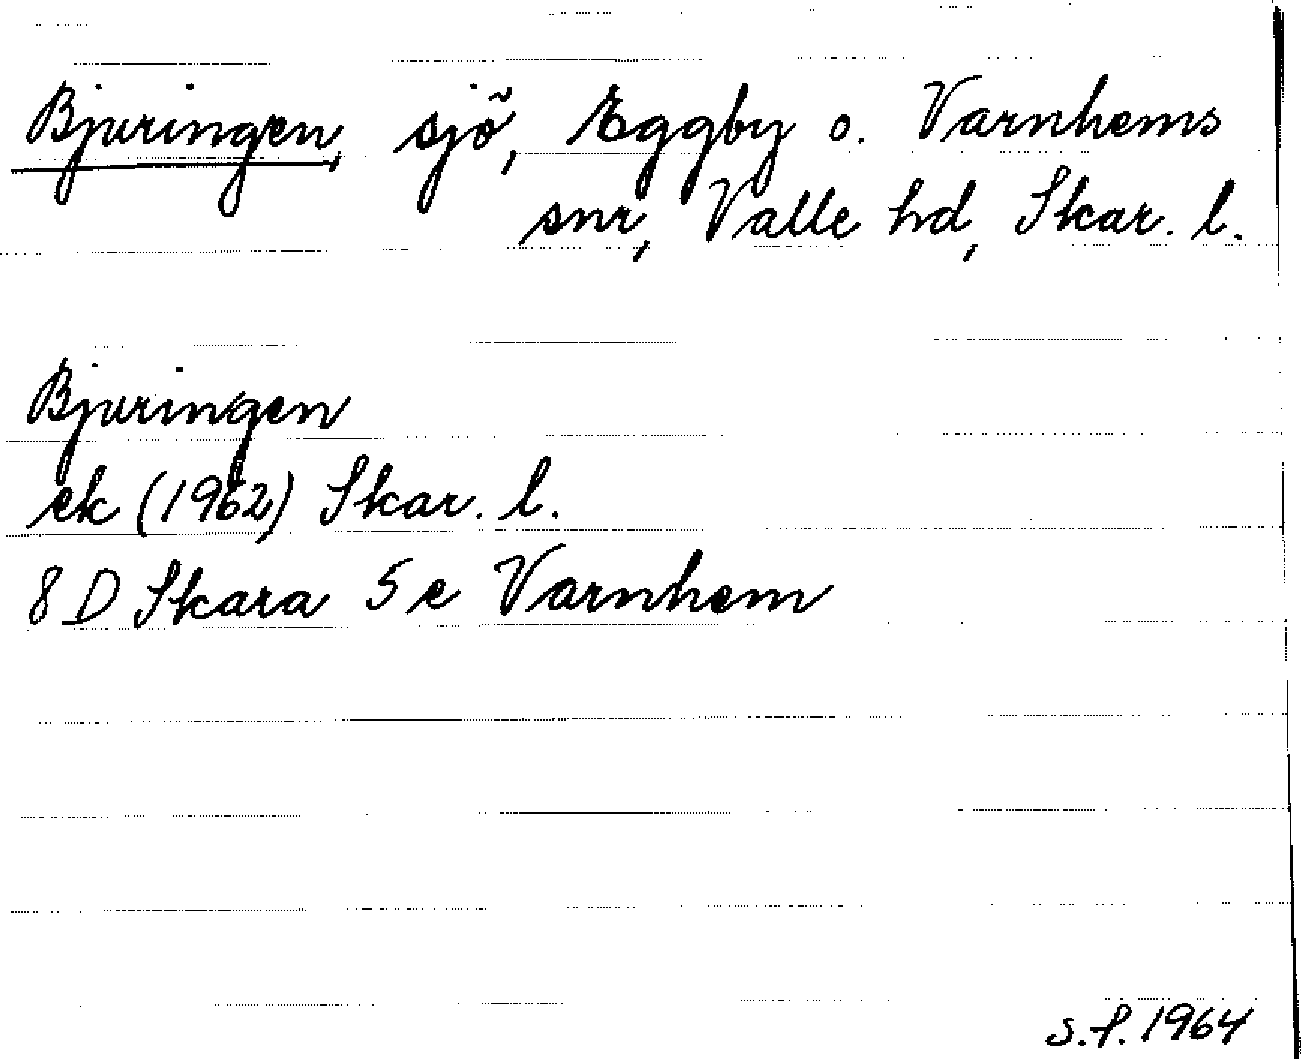 Bjuringen, sjö, Eggby o. Varnhems
snr, Valle hd, Skar. l.
Bjuringen
ek (1962) Skar. l.
8 D Skara 5 e Varnhem
S.f. 1964